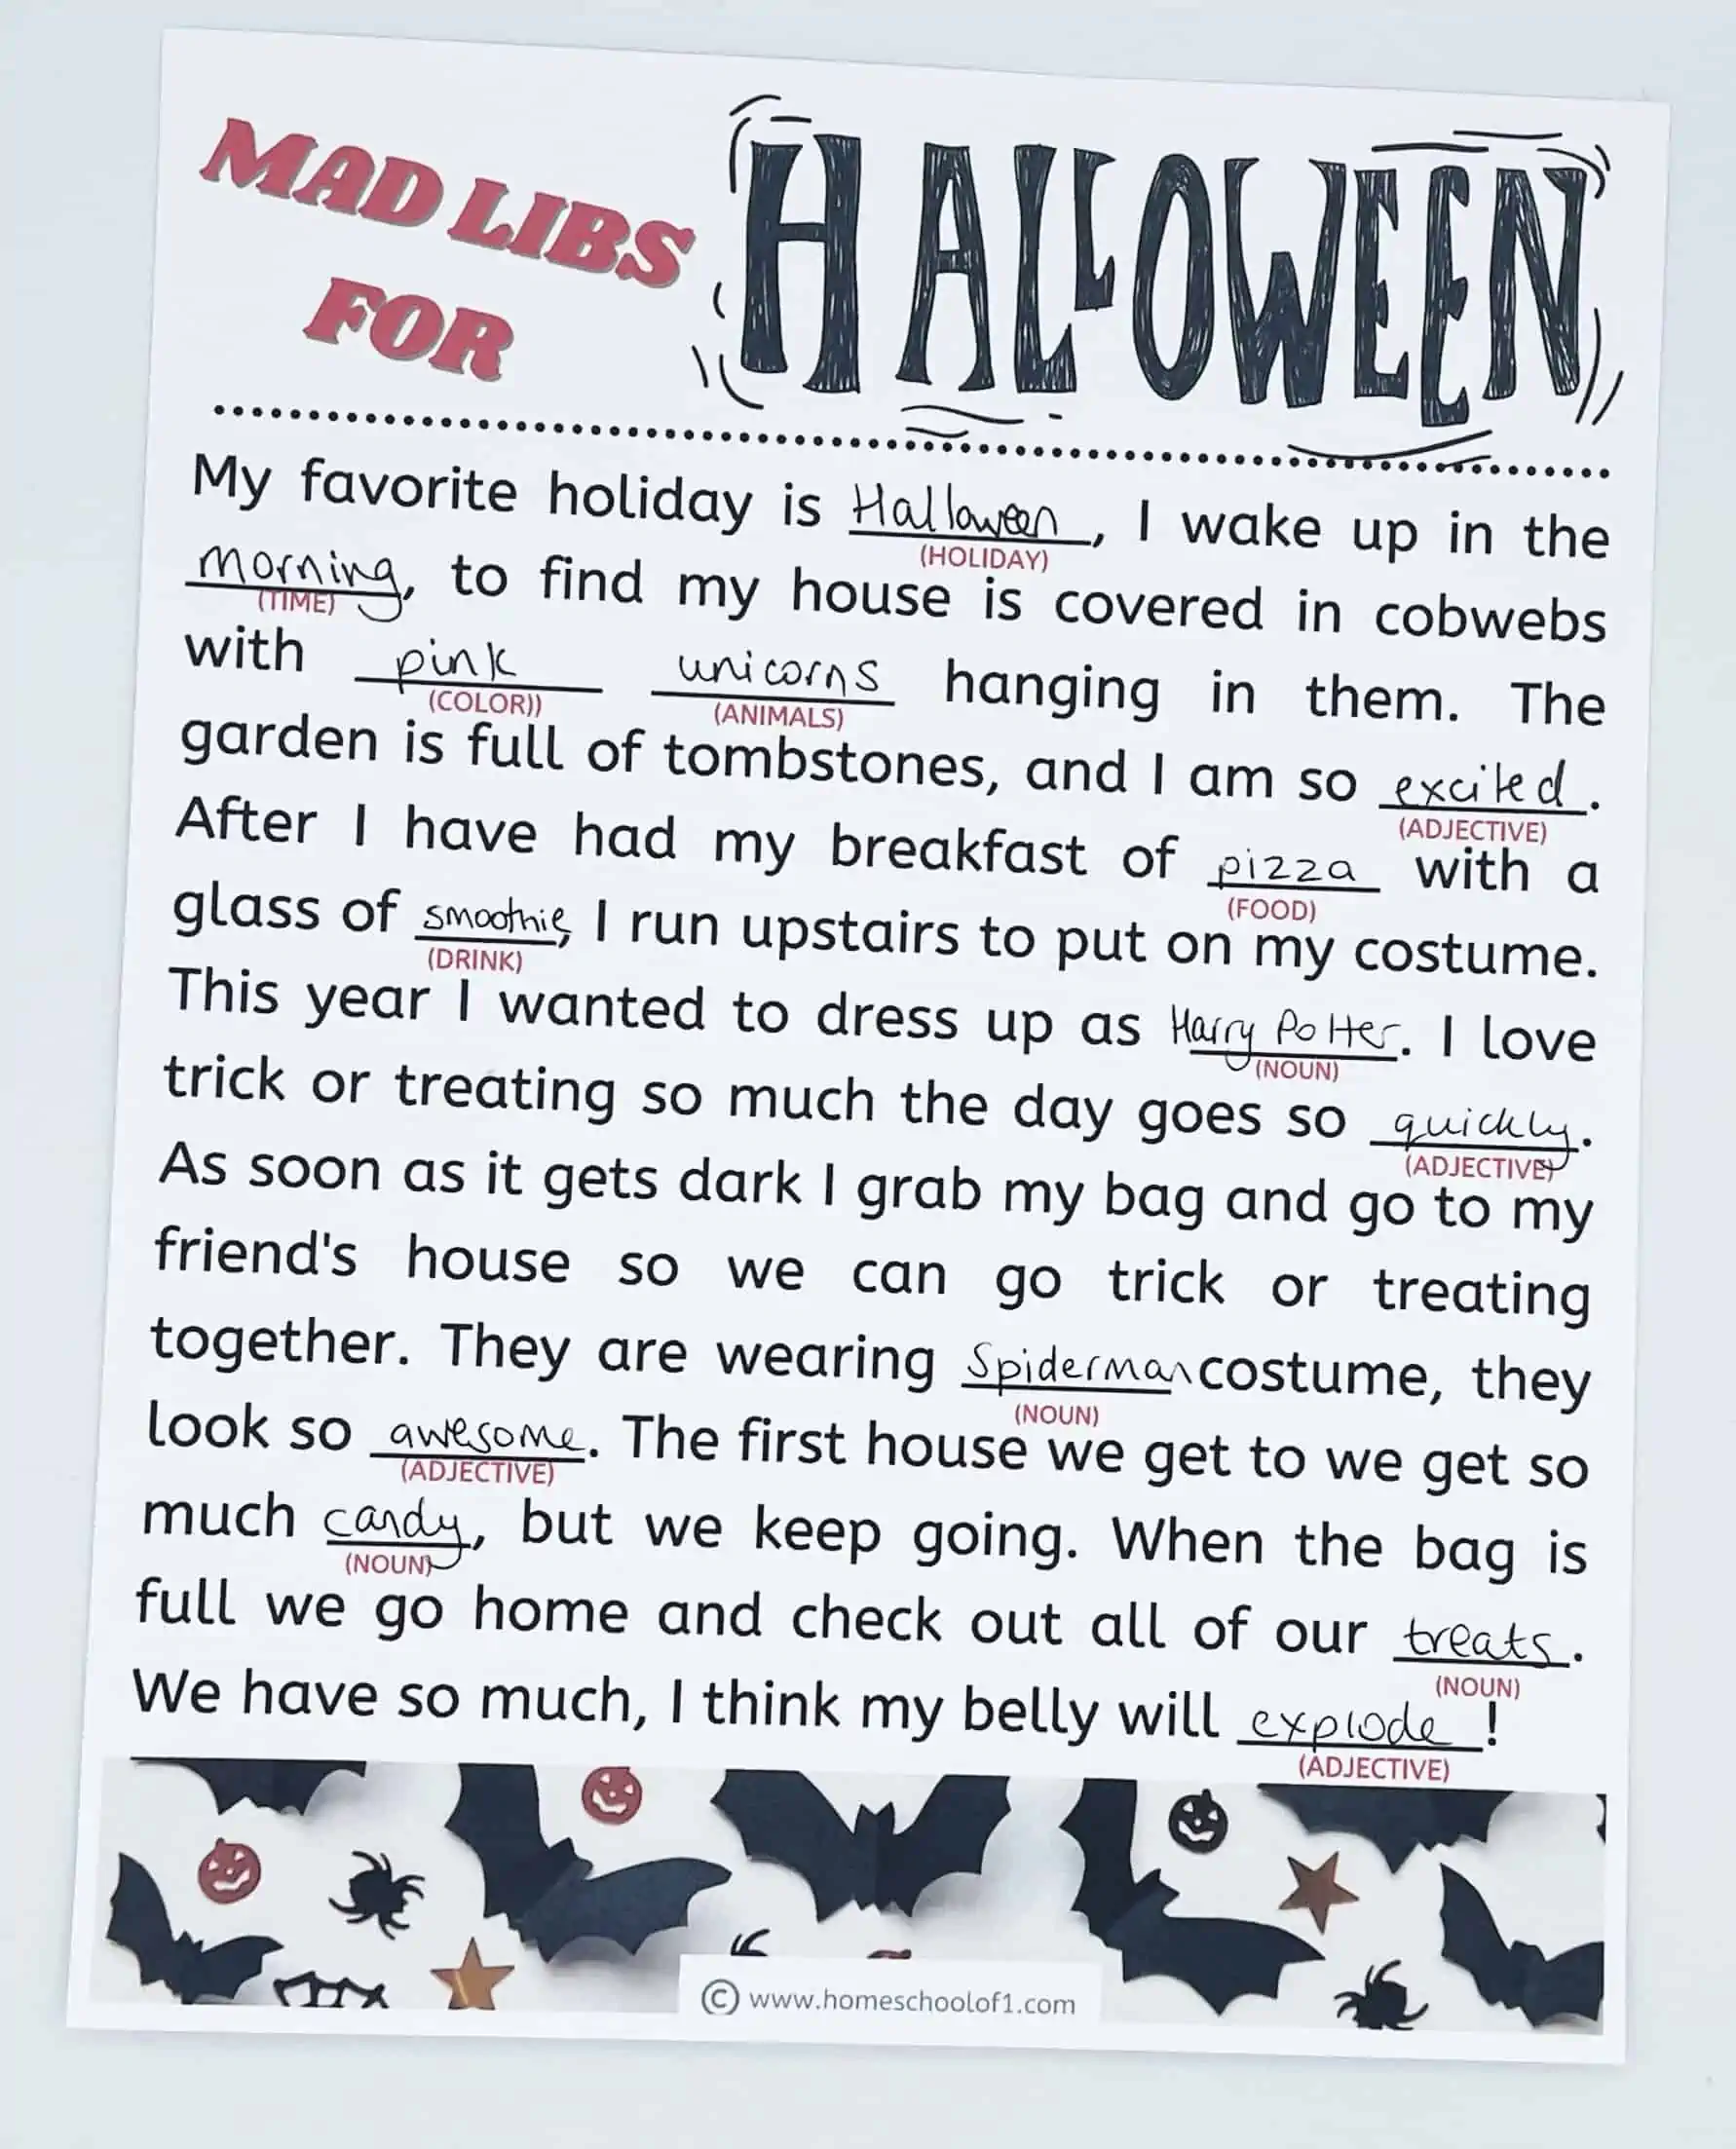 MAD LIBS FOR HALLOWEEN
My favorite holiday is Halloween, I wake up in the
(HOLIDAY)
morning, to find my house is covered in cobwebs
(TIME)
with pink unicorns hanging in them. The
(COLOR)) (ANIMALS)
garden is full of tombstones, and I am so excited.
(ADJECTIVE)
After I have had my breakfast of pizza with a
(FOOD)
glass of smoothie, I run upstairs to put on my costume.
(DRINK)
This year I wanted to dress up as Harry Potter. I love
(NOUN)
trick or treating so much the day goes so quickly.
(ADJECTIVE)
As soon as it gets dark I grab my bag and go to my
friend's house so we can go trick or treating
together. They are wearing Spiderman costume, they
(NOUN)
look so awesome. The first house we get to we get so
(ADJECTIVE)
much candy, but we keep going. When the bag is
(NOUN)
full we go home and check out all of our treats.
(NOUN)
We have so much, I think my belly will explode!
(ADJECTIVE)
© www.homeschoolof1.com